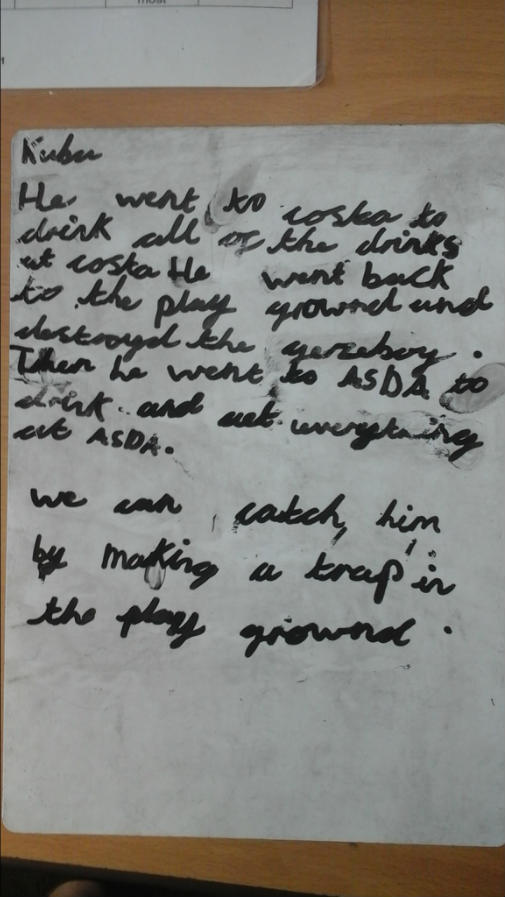 most
Kuba
He went to costa to
drink all of the drinks
at costa He went back
to the play grownd and
destroyd the gerzeboy.
Then he went to ASDA to
drink and aet everything
at ASDA.
we can catch him
by making a trap in
the play grownd.